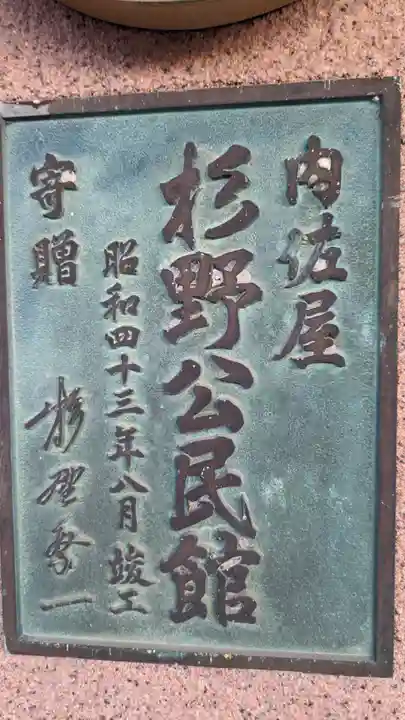 内佐屋
杉野公民館
昭和四十三年八月竣工
寄贈 杉野
一